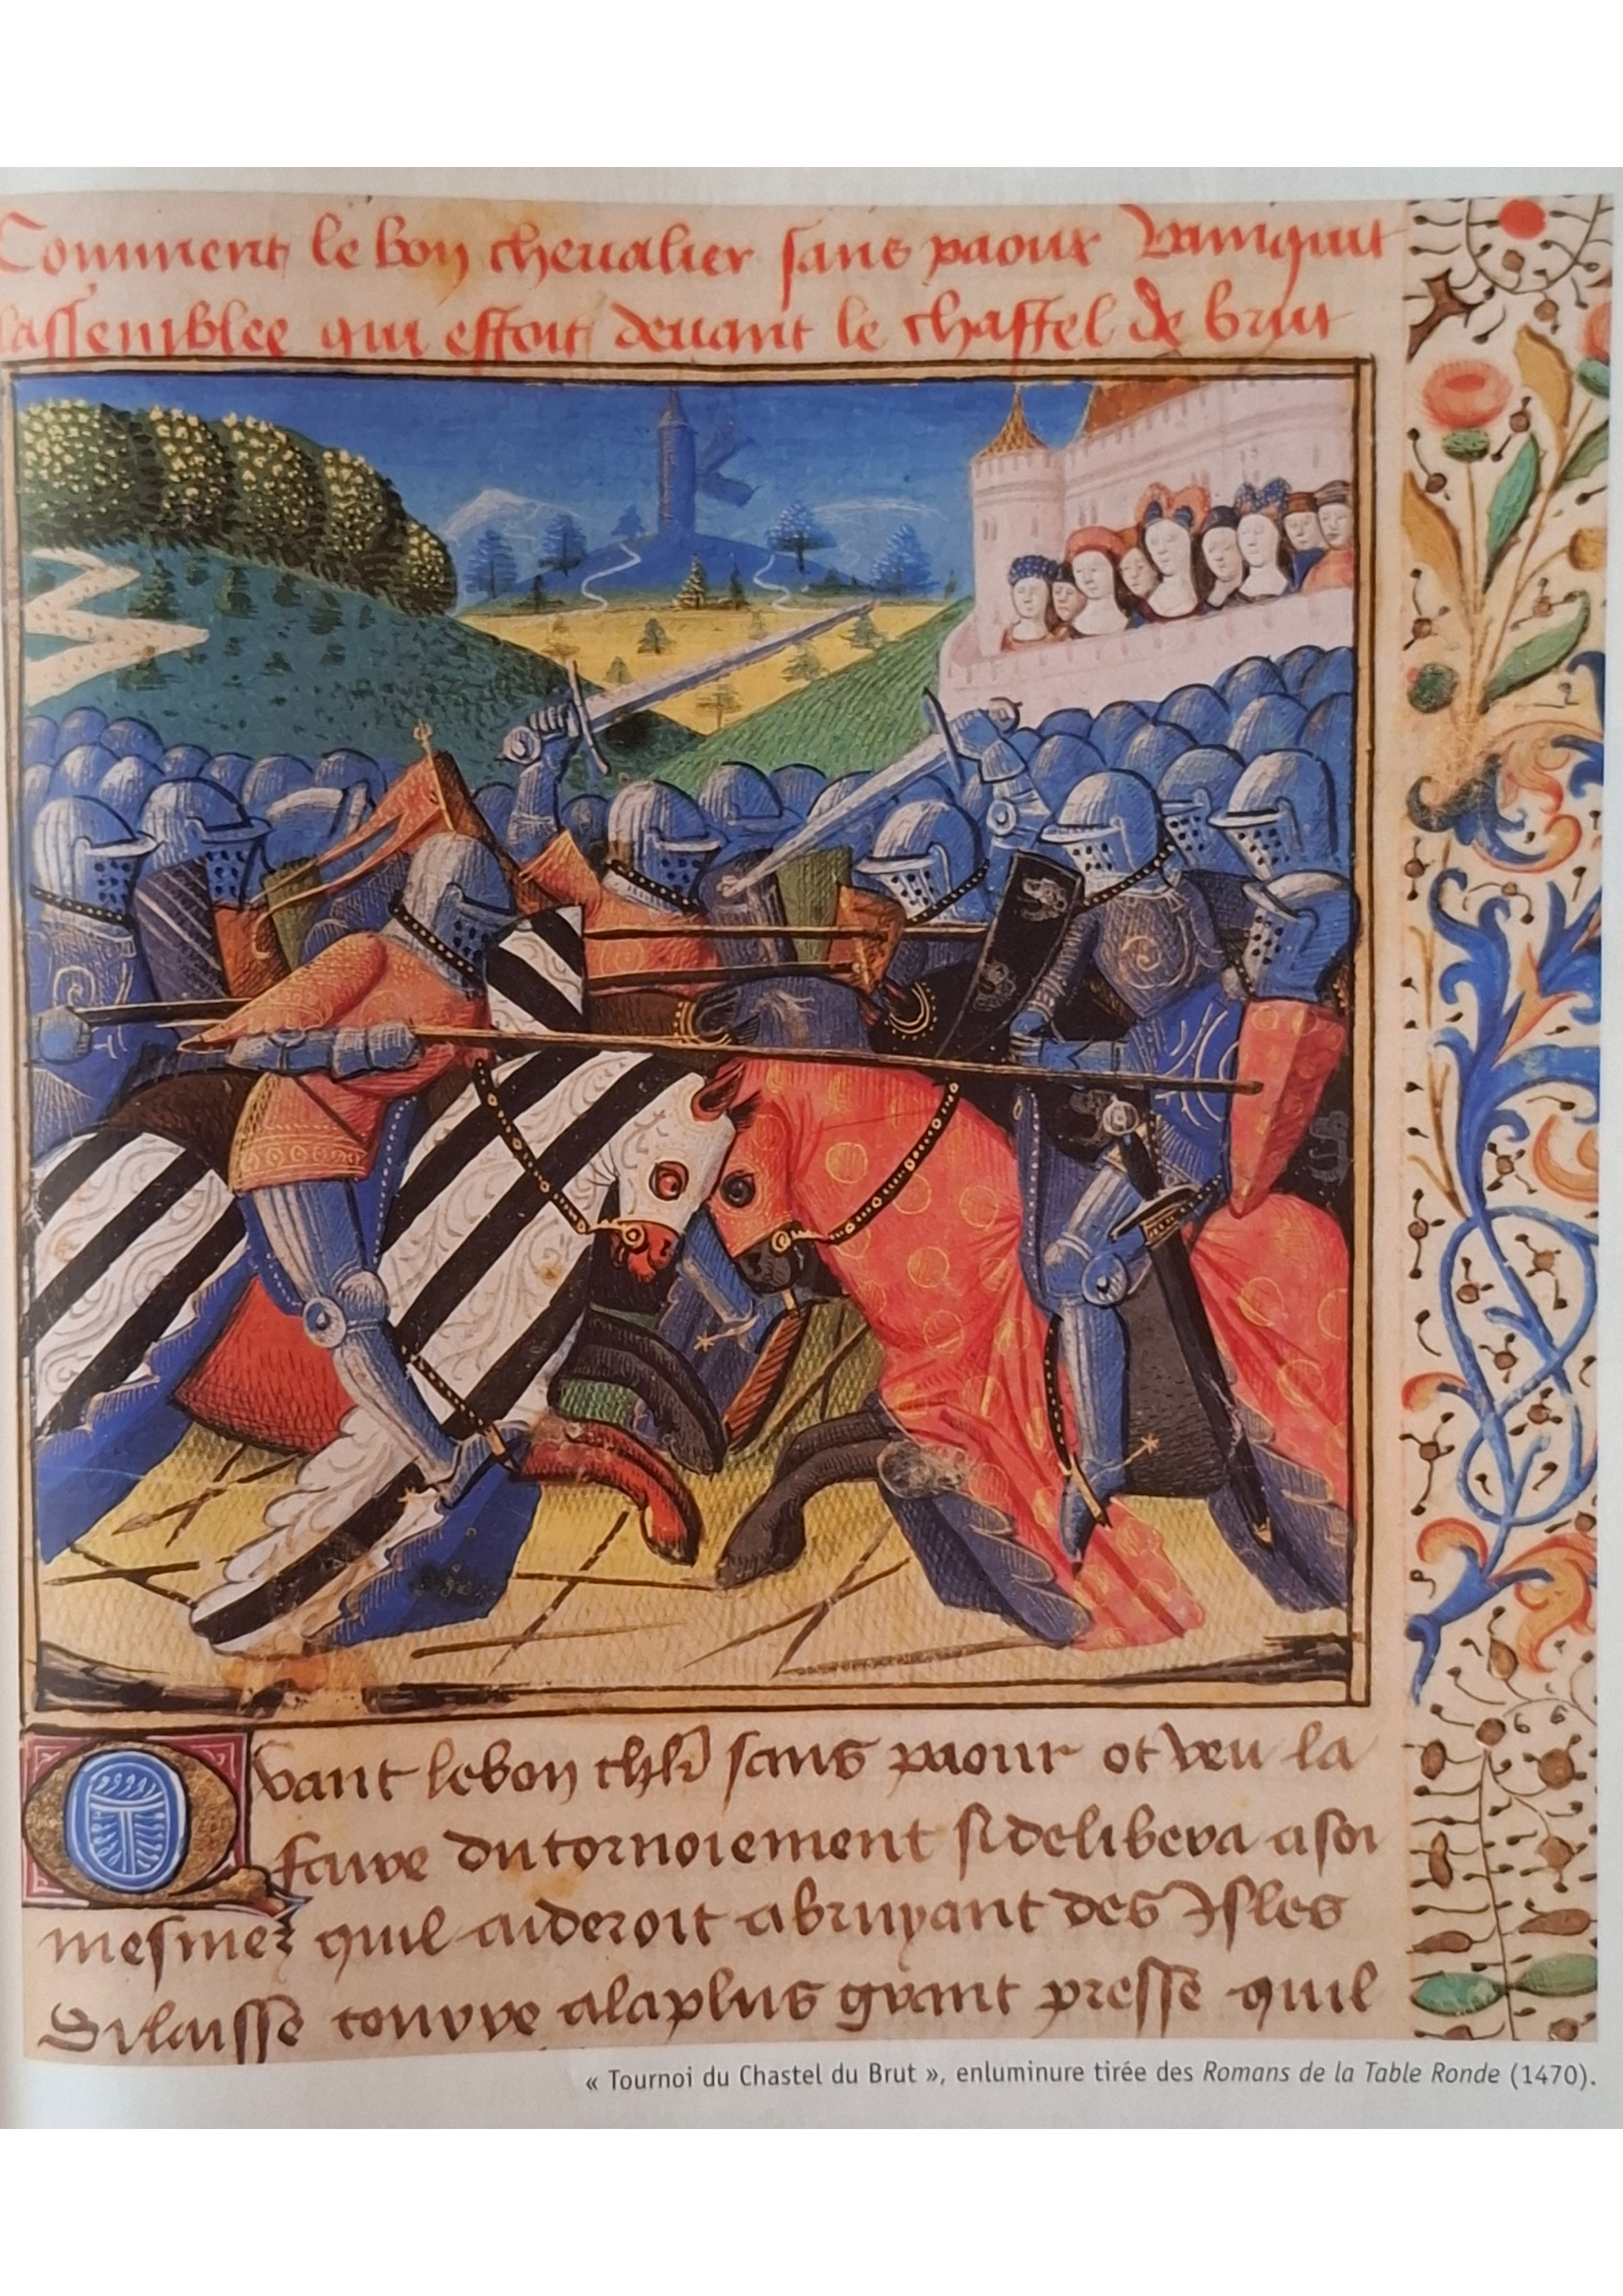 Comment le bon chevalier sans paour vainquit
lassemblee qui estoit devant le chastel de brut
Quant le bon chlr sans paour ot veu la
faire du tornoiement si delibera a soi
mesmez quil aideroit a bruyant des Isles
Si laisse courre a la plus grant presse quil
« Tournoi du Chastel du Brut », enluminure tirée des Romans de la Table Ronde (1470).